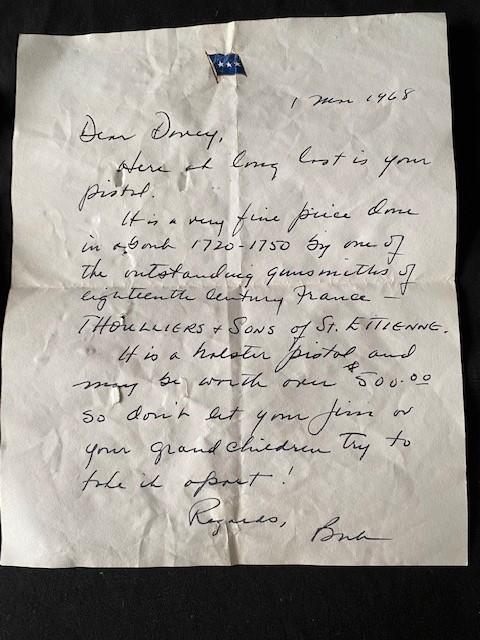 1 Mar 1968
Dear Dorcey,
Here at long last is your
pistol.
It is a very fine piece done
in about 1720-1750 by one of
the outstanding gunsmiths of
eighteenth century France -
THOLLIERS + SONS of ST. ETTIENNE.
It is a holster pistol and
may be worth over $500.00
so don't let your Jim or
your grandchildren try to
take it apart!
Regards,
Bob